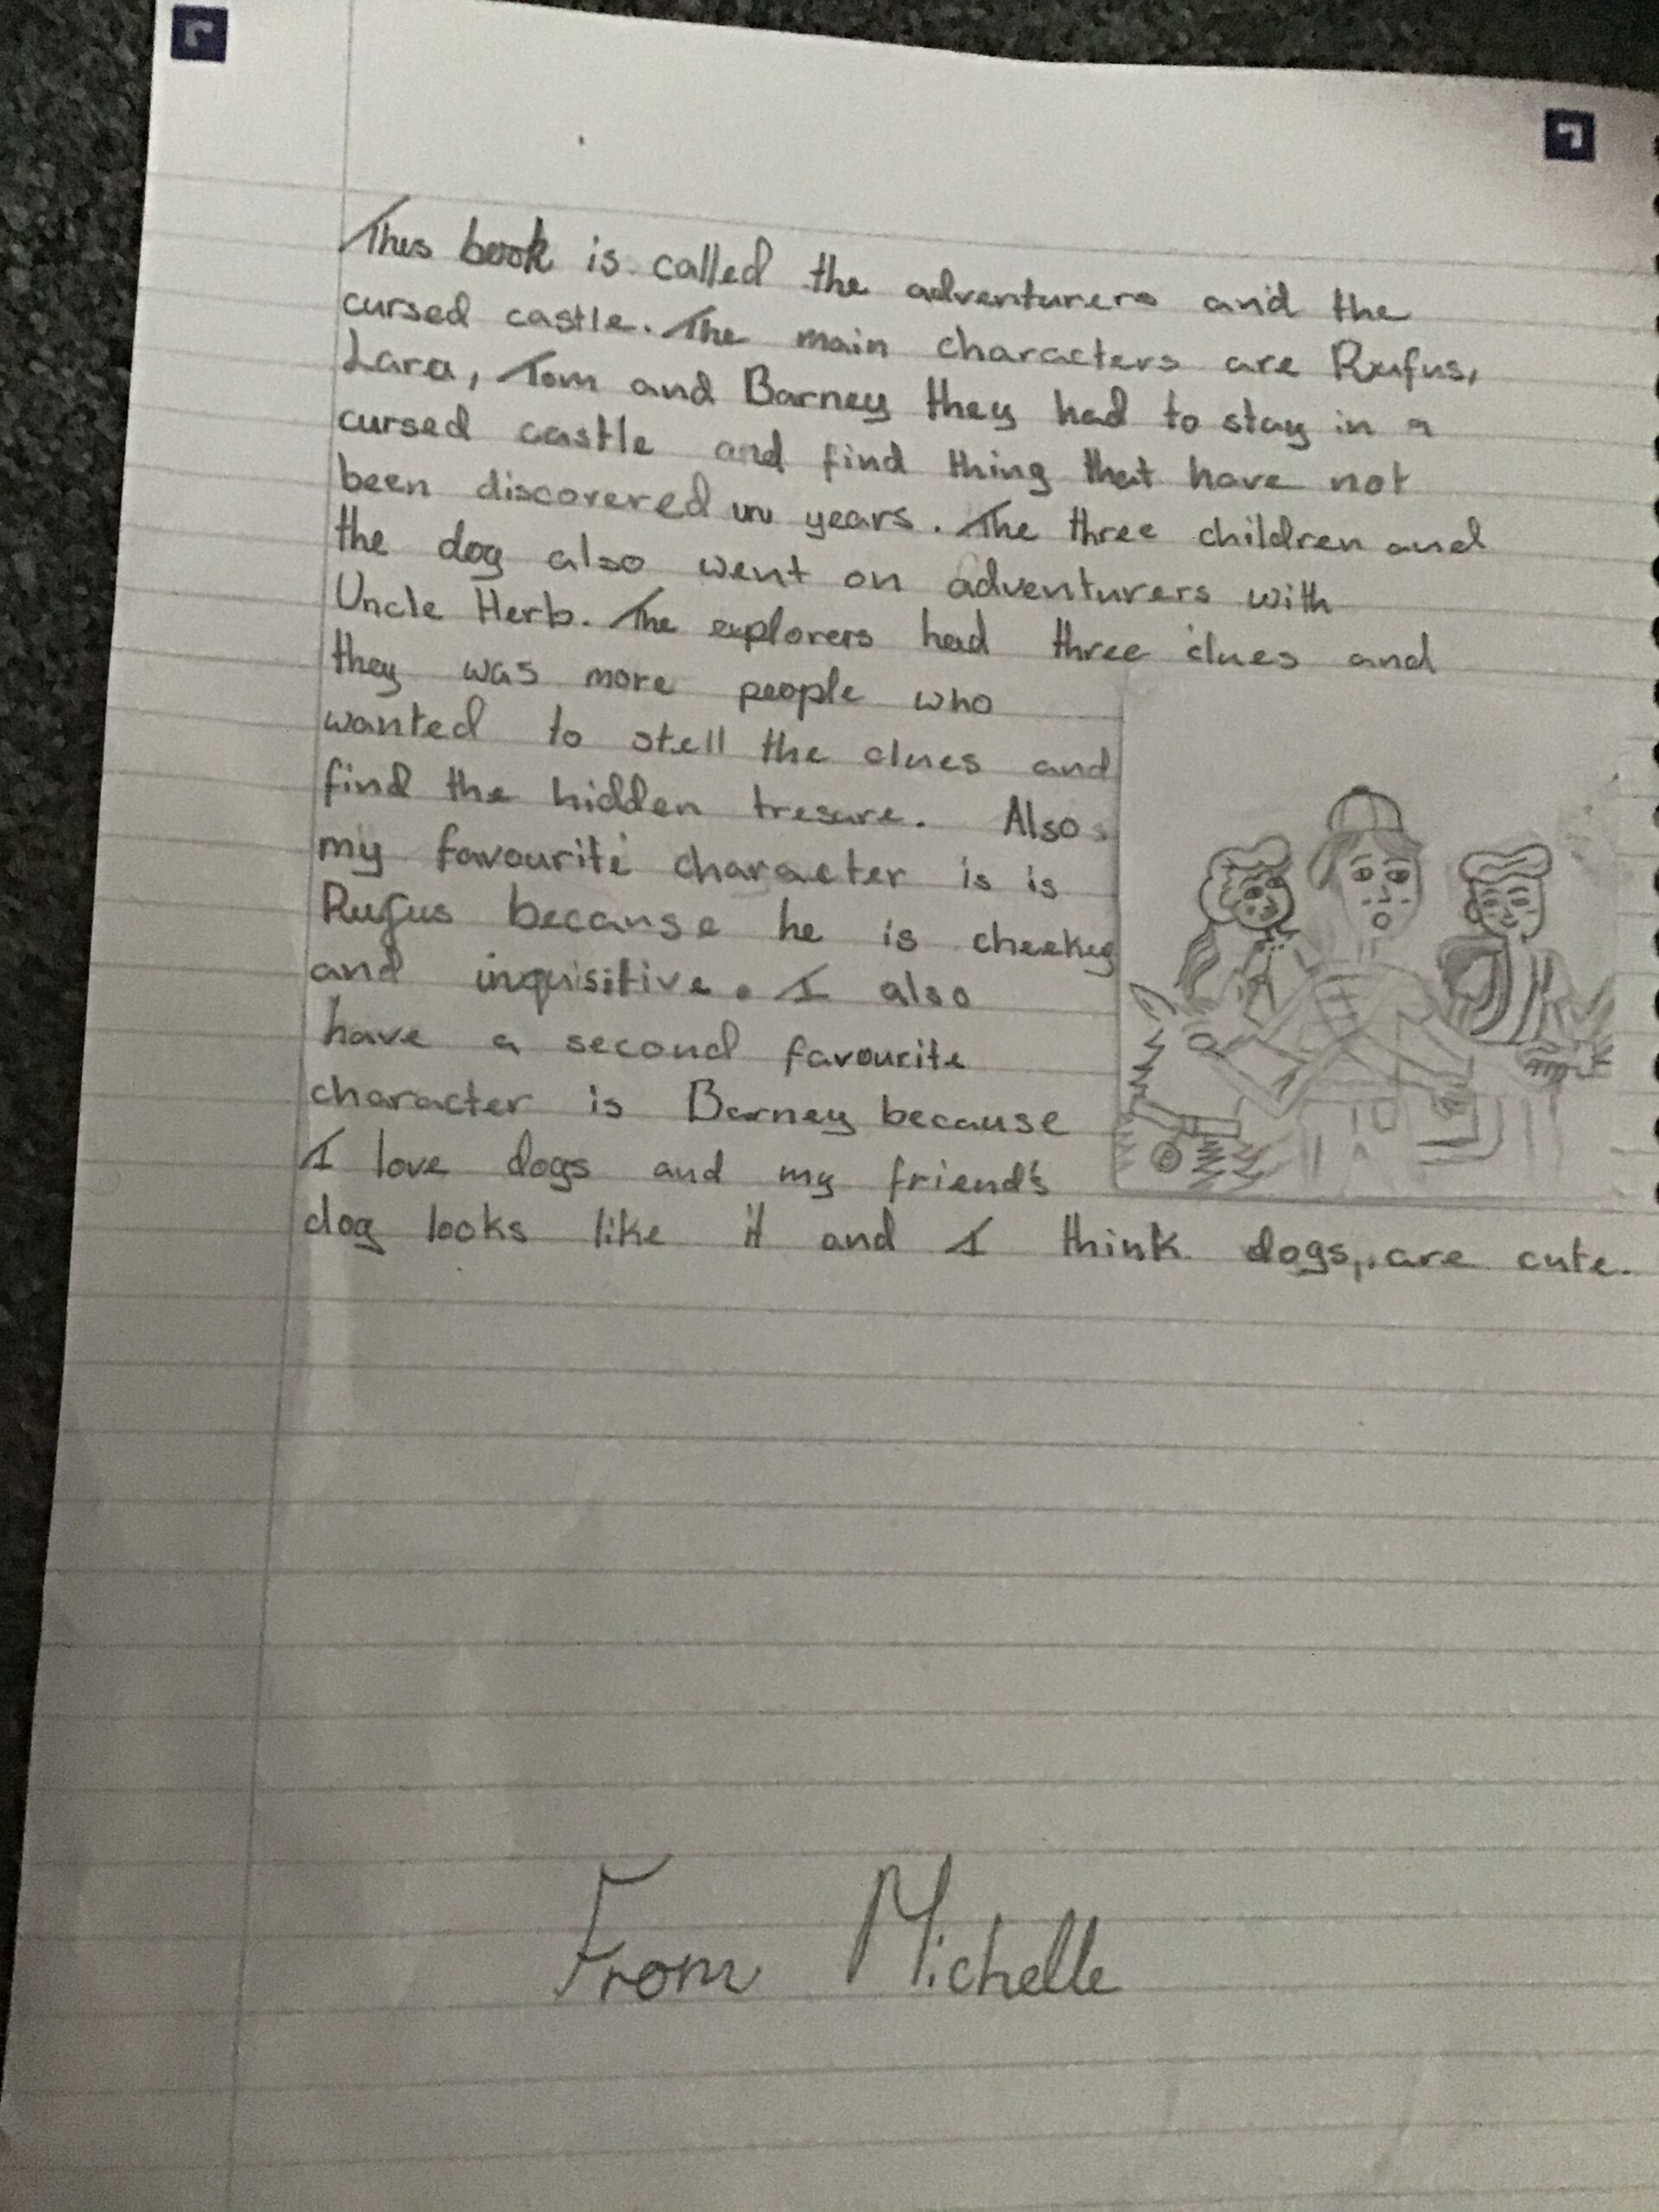 This book is called the adventurers and the
cursed castle. The main characters are Rufus,
Lara, Tom and Barney they had to stay in a
cursed castle and find thing that have not
been discovered in years. The three children and
the dog also went on adventurers with
Uncle Herb. The explorers had three clues and
they was more people who
wanted to stell the clues and
find the hidden tresure. Also
my favourite character is is
Rufus because he is cheekey
and inquisitive. I also
have a second favourite
character is Barney because
I love dogs and my friend's
dog looks like it and I think dogs, are cute.
From Michelle